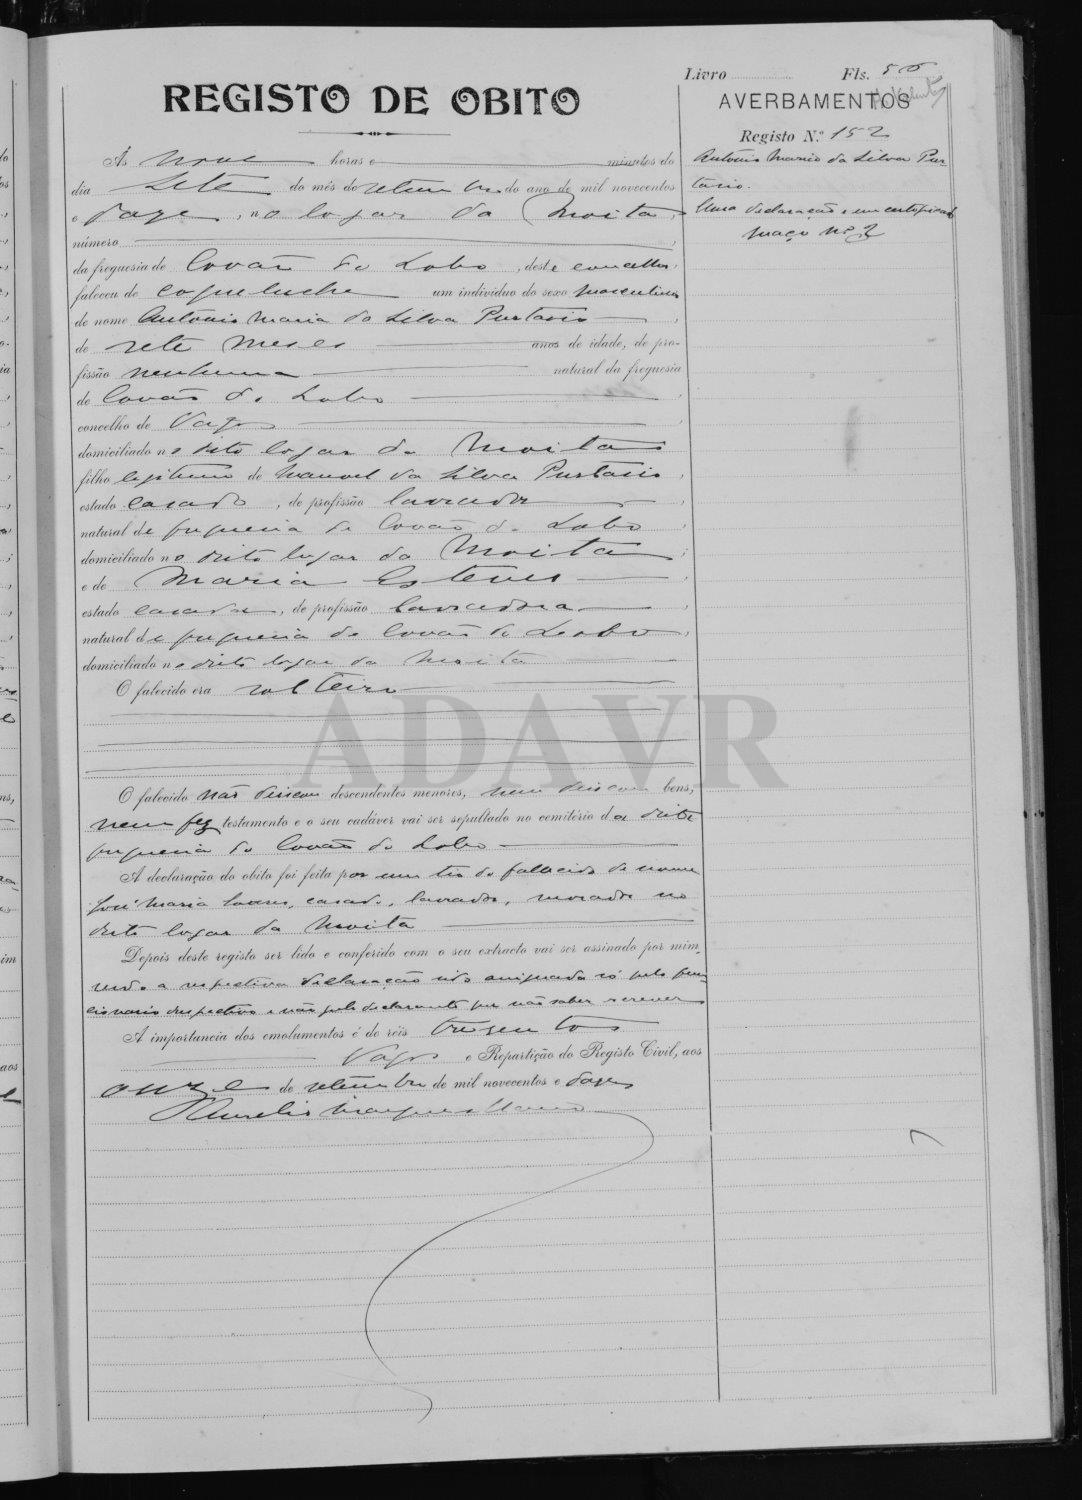 Livro Fls. 50
REGISTO DE OBITO
AVERBAMENTOS
Registo N.º 152
António Maria da Silva Pur-
tasio.
Uma declaração e um certificado
maço nº 2
Ás nove horas e minutos do
dia sete do mês de setembro do ano de mil novecentos
e doze, no logar da Moita,
número
da freguesia de Covão do Lobo, deste concelho,
faleceu de coqueluche um individuo do sexo masculino
de nome António Maria da Silva Purtasio,
de sete meses anos de idade, de pro-
fissão nenhuma natural da freguesia
de Covão do Lobo,
concelho de Vagos,
domiciliado no dito logar da Moita
filho legitimo de Manuel da Silva Purtasio,
estado casado, de profissão lavrador,
natural de freguesia de Covão do Lobo,
domiciliado no dito logar da Moita;
e de Maria Esteves,
estado casada, de profissão lavradora,
natural de freguesia de Covão do Lobo,
domiciliado no dito logar da Moita
O falecido era solteiro
ADAVR
O falecido não deixou descendentes menores, nem deixou bens,
nem fez testamento e o seu cadáver vai ser sepultado no cemitério da dita
freguesia de Covão do Lobo
A declaração do obito foi feita por um tio do fallecido de nome
José Maria casado, lavrador, morador no
dito logar da Moita
Depois deste registo ser lido e conferido com o seu extracto vai ser assinado por mim,
a respectiva declaração sido assignada só pelo fun-
cionario respectivo e não pelo declarante por não saber escrever
A importancia dos emolumentos é de réis tresentos
Vagos e Repartição do Registo Civil, aos
onze de setembro de mil novecentos e doze
Aurelio Marques